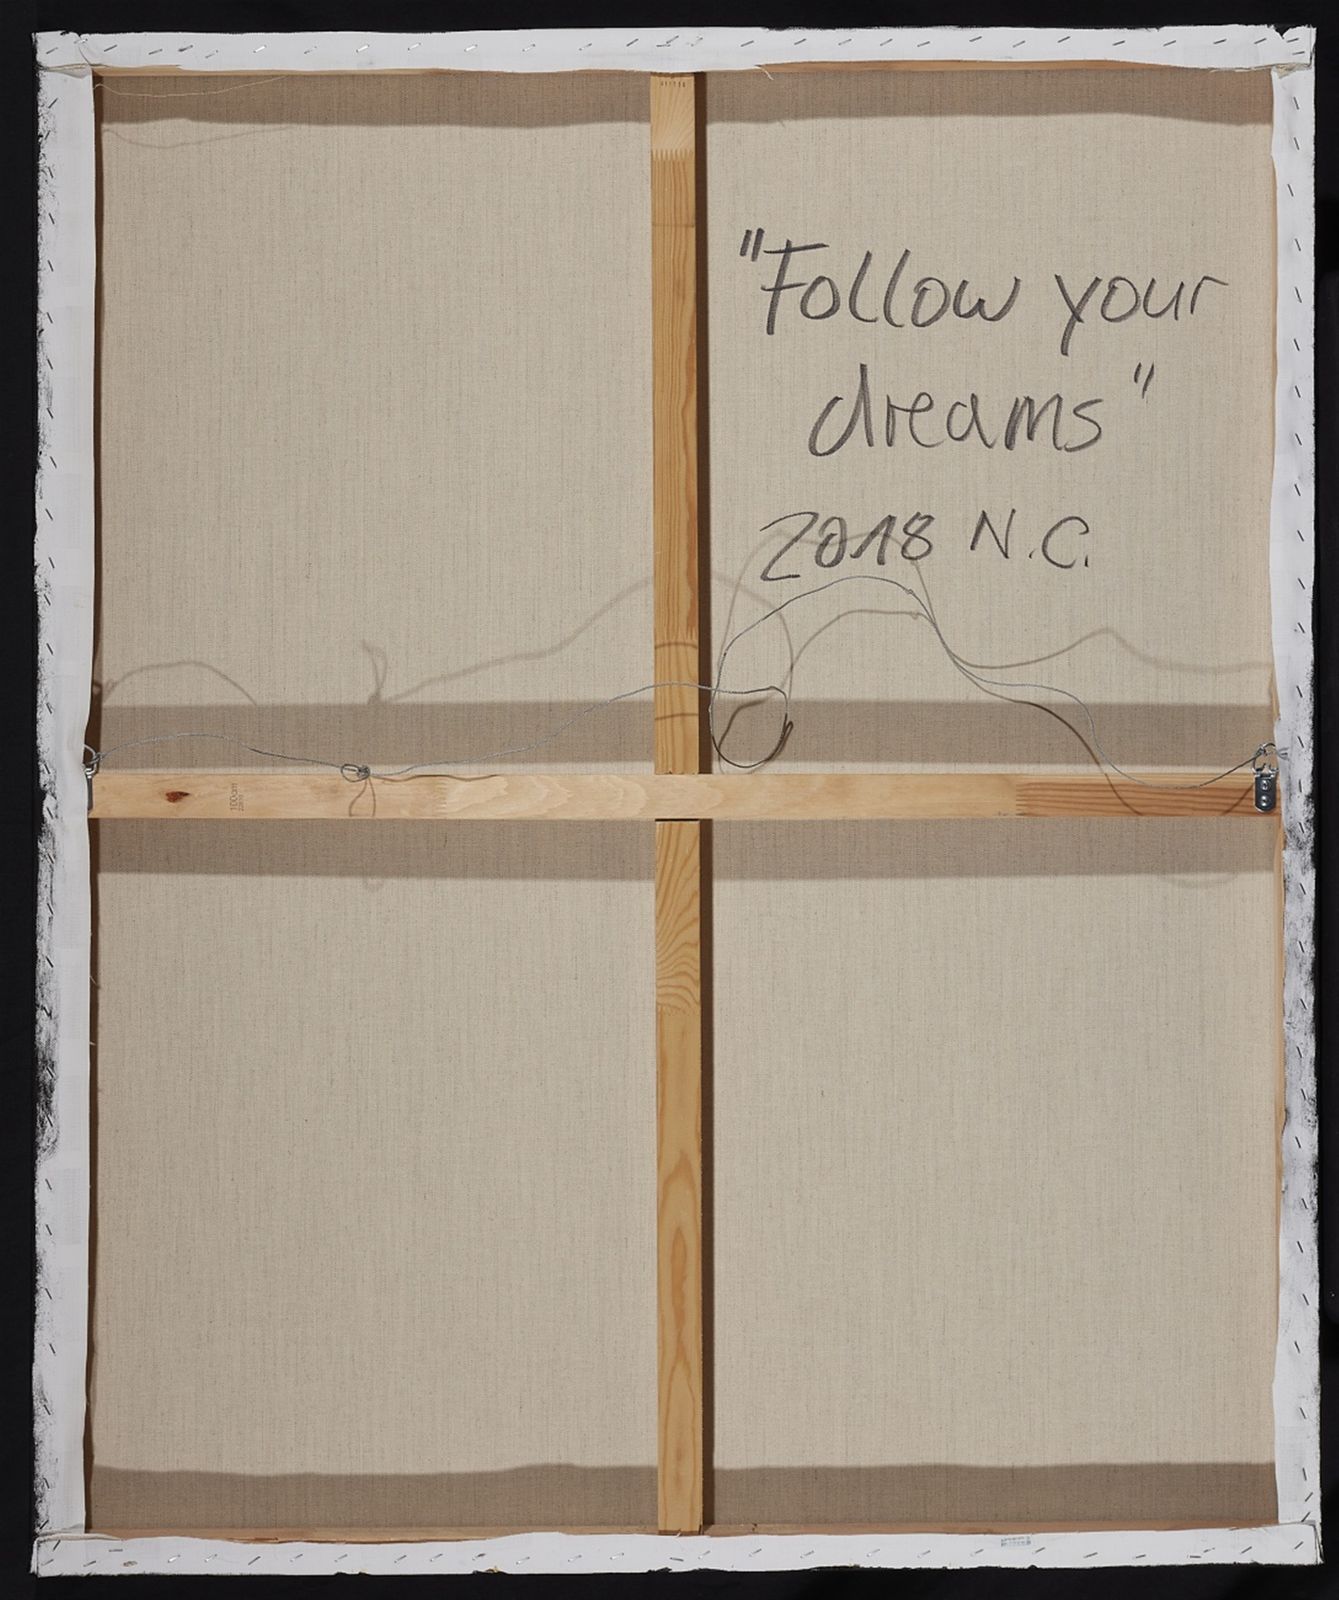 "Follow your
dreams"
2018 N.C.
100cm